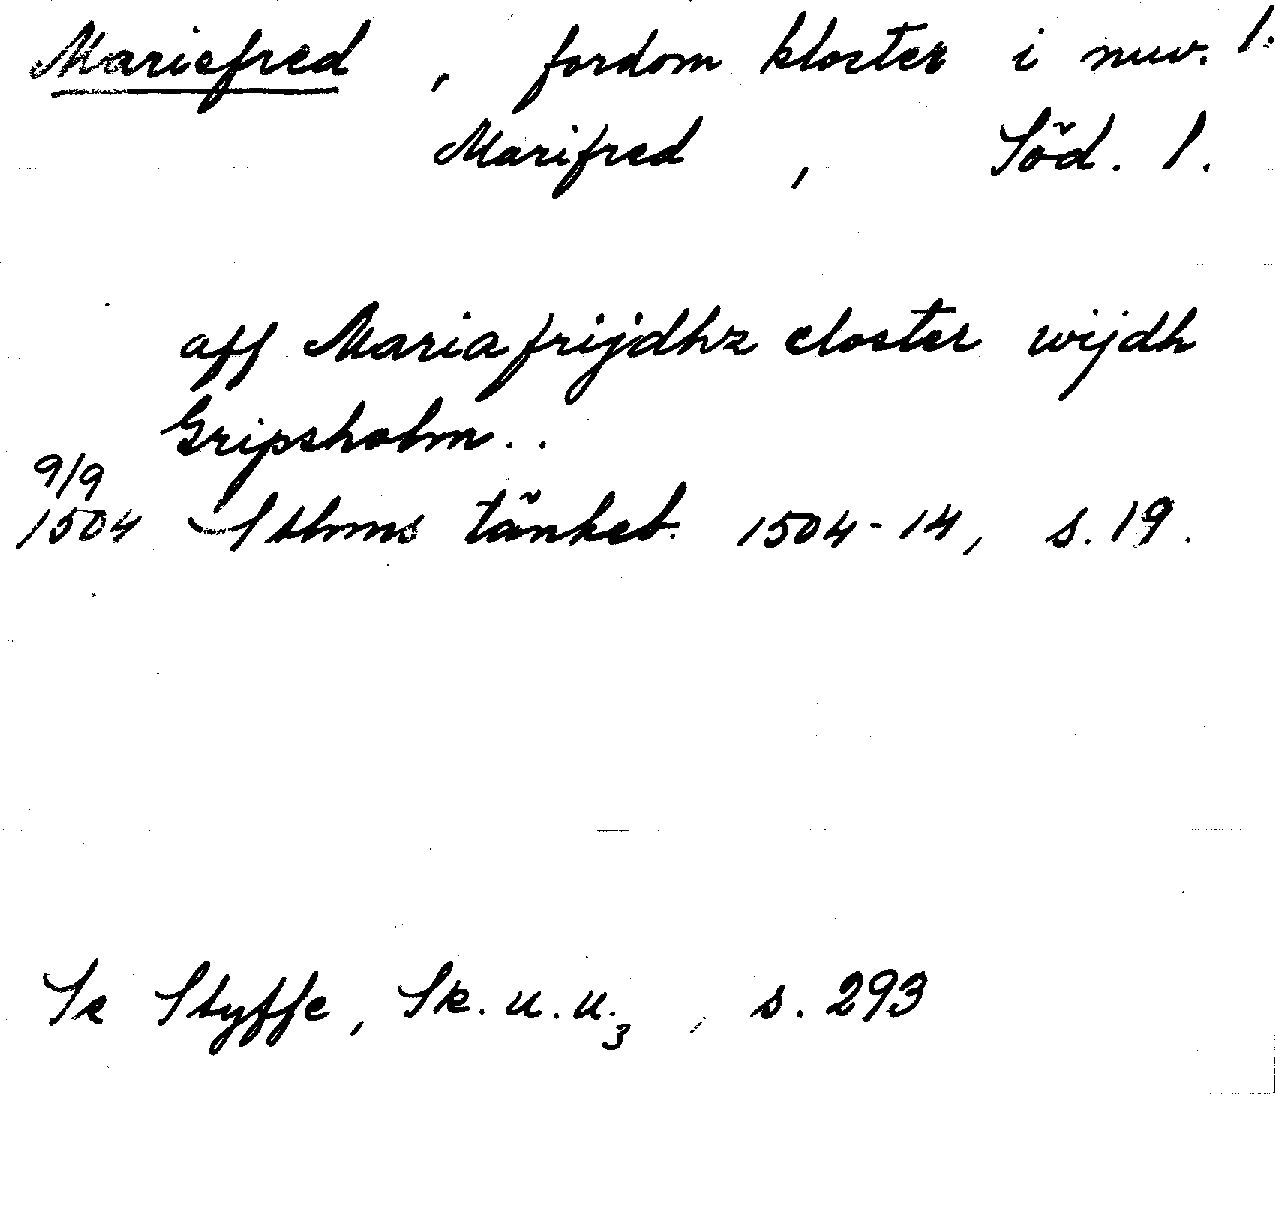 Mariefred, fordom kloster i nuv. l.
Marifred, Söd. l.
aff Mariafrijdhz closter wijdh
Gripsholm..
9/9
1504 Sthms tänkeb. 1504-14, s. 19.
Se Styffe, Sk. u. u.3, s. 293